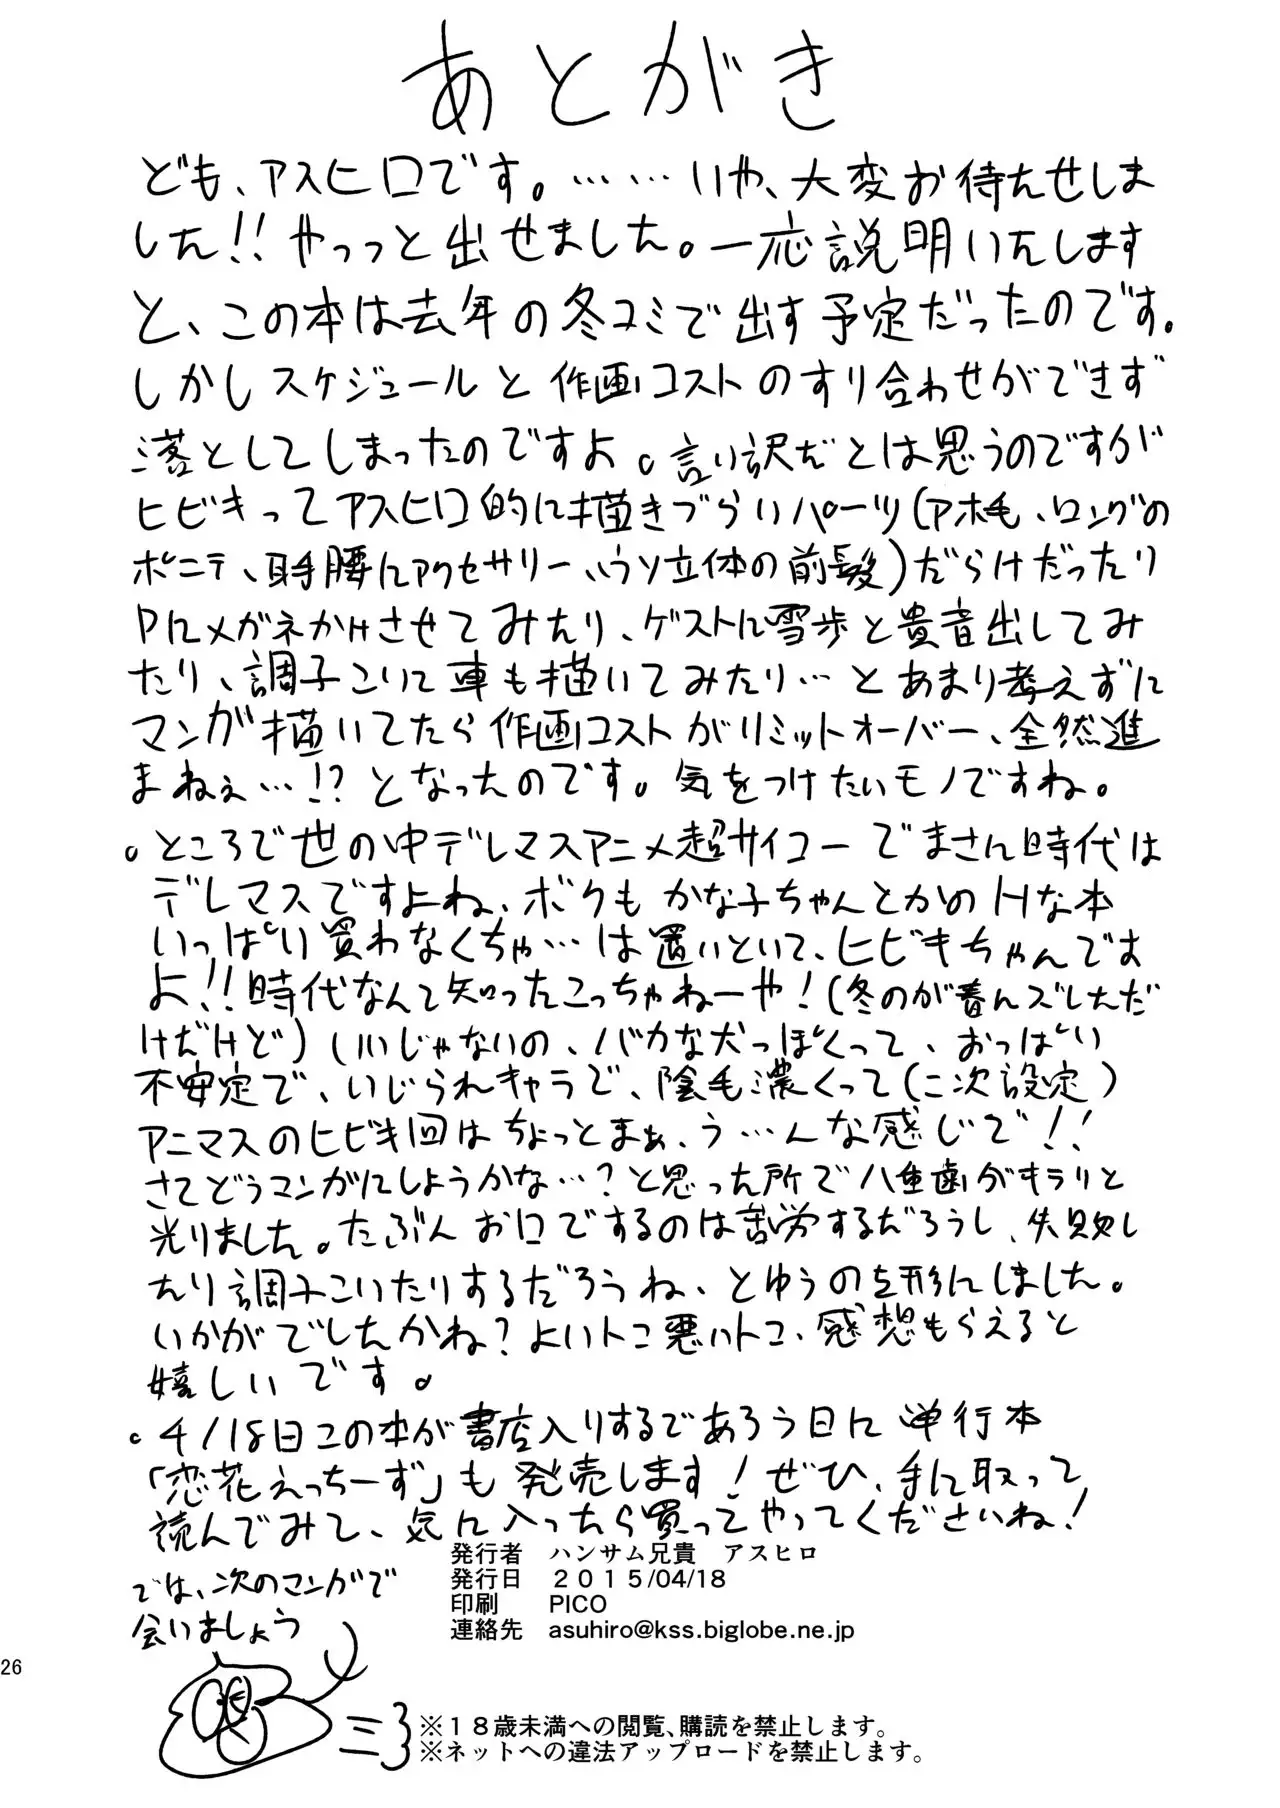 あとがき
ども、アスヒロです。……いや、大変お待たせしま
した!!やっっと出せました。一応説明いたします
と、この本は去年の冬コミで出す予定だったのです。
しかしスケジュールと作画コストのすり合わせができず
落としてしまったのですよ。言い訳だとは思うのですが
ヒビキってアスヒロ的に描きづらいパーツ(アホ毛、ロングの
ポニテ、耳手腰にアクセサリー、ウソ立体の前髪)だらけだったり
Pにメガネかけさせてみたり、ゲストに雪歩と貴音出してみ
たり、調子こいて車も描いてみたり…とあまり考えずに
マンガ描いてたら作画コストがリミットオーバー、全然進
まねぇ…!?となったのです。気をつけたいモノですね。
。ところで世の中デレマスアニメ超サイコーでまさん時代は
デレマスですよね、ボクもかな子ちゃんとかのHな本
いっぱい買わなくちゃ…は置いといて、ヒビキちゃんです
よ!!時代なんて知ったこっちゃねーや!(冬のが着んズしただ
けだけど)いいじゃないの、バカな犬っぽくって、おっぱい
不安定で、いじられキャラで、陰毛濃くって(二次設定)
アニマスのヒビキ回はちょっとまぁ、う…んな感じで!!
さてどうマンガにしようかな…?と思った所で八重歯がキラリと
光りました。たぶんお口でするのは苦労するだろうし、失敗し
たり調子こいたりするだろうね、とゆうのを形にしました。
いかがでしたかね?よいトコ悪いトコ、感想もらえると
嬉しいです。
。4/18日この本が書店入りするであろう日に単行本
「恋花えっちーず」も発売します!ぜひ、手に取って
読んでみて、気に入ったら買ってやってくださいね!
では、次のマンガで
会いましょう
発行者 ハンサム兄貴 アスヒロ
発行日 2015/04/18
印刷 PICO
連絡先 asuhiro@kss.biglobe.ne.jp
26
※18歳未満への閲覧、購読を禁止します。
※ネットへの違法アップロードを禁止します。